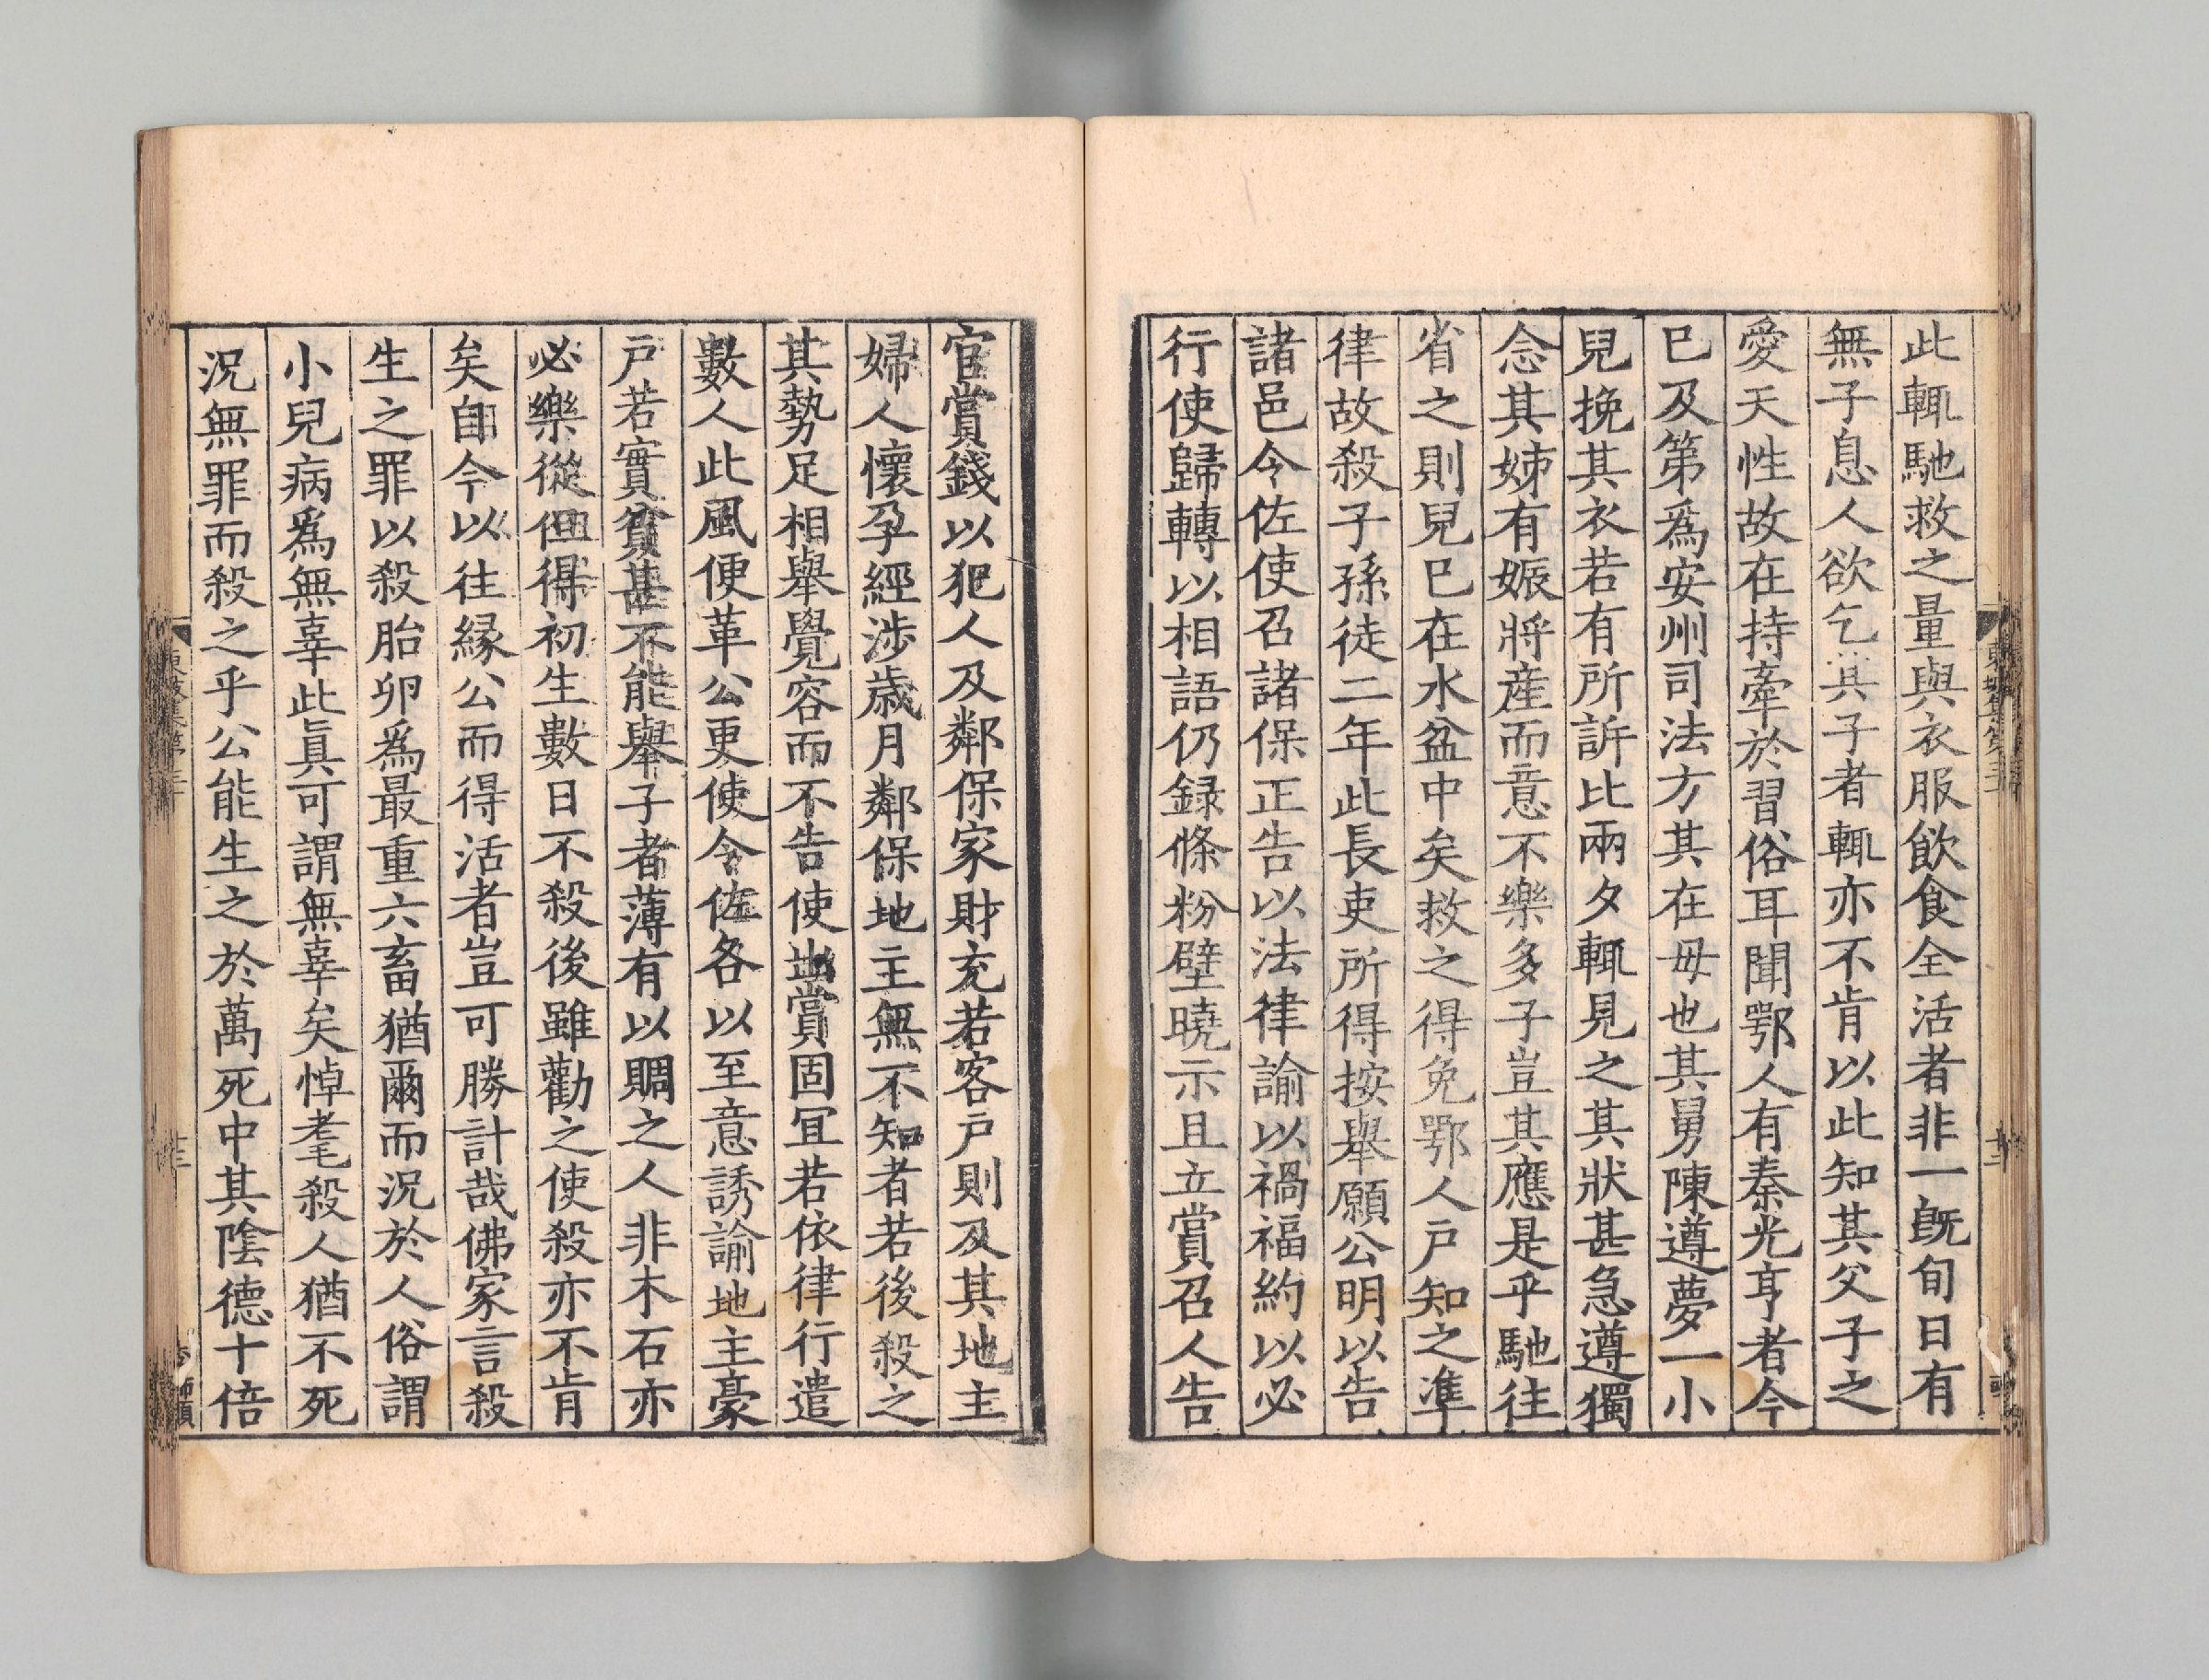 此輒馳救之量與衣服飲食全活者非一旣旬日有
無子息人欲乞其子者輒亦不肯以此知其父子之
愛天性故在持牽於習俗耳聞鄂人有秦光亨者今
巳及第爲安州司法方其在母也其舅陳遵夢一小
兒挽其衣若有所訴比兩夕輒見之其狀甚急遵獨
念其姊有娠將産而意不樂多子豈其應是乎馳往
省之則兒巳在水盆中矣救之得免鄂人户知之準
律故殺子孫徒二年此長吏所得按舉願公明以告
諸邑令佐使召諸保正告以法律諭以禍福約以必
行使歸轉以相語仍録條粉壁曉示且立賞召人告
官賞錢以犯人及鄰保家財充若客户則及其地主
婦人懷孕經涉歲月鄰保地主無不知者若後殺之
其勢足相舉覺容而不告使出賞固冝若依律行遣
數人此風便革公更使令佐各以至意誘諭地主豪
户若實貧甚不能舉子者薄有以賙之人非木石亦
必樂從但得初生數日不殺後雖勸之使殺亦不肯
矣自今以往緣公而得活者豈可勝計哉佛家言殺
生之罪以殺胎卵爲最重六畜猶爾而況於人俗謂
小兒病爲無辜此眞可謂無辜矣悼耄殺人猶不死
況無罪而殺之乎公能生之於萬死中其陰德十倍